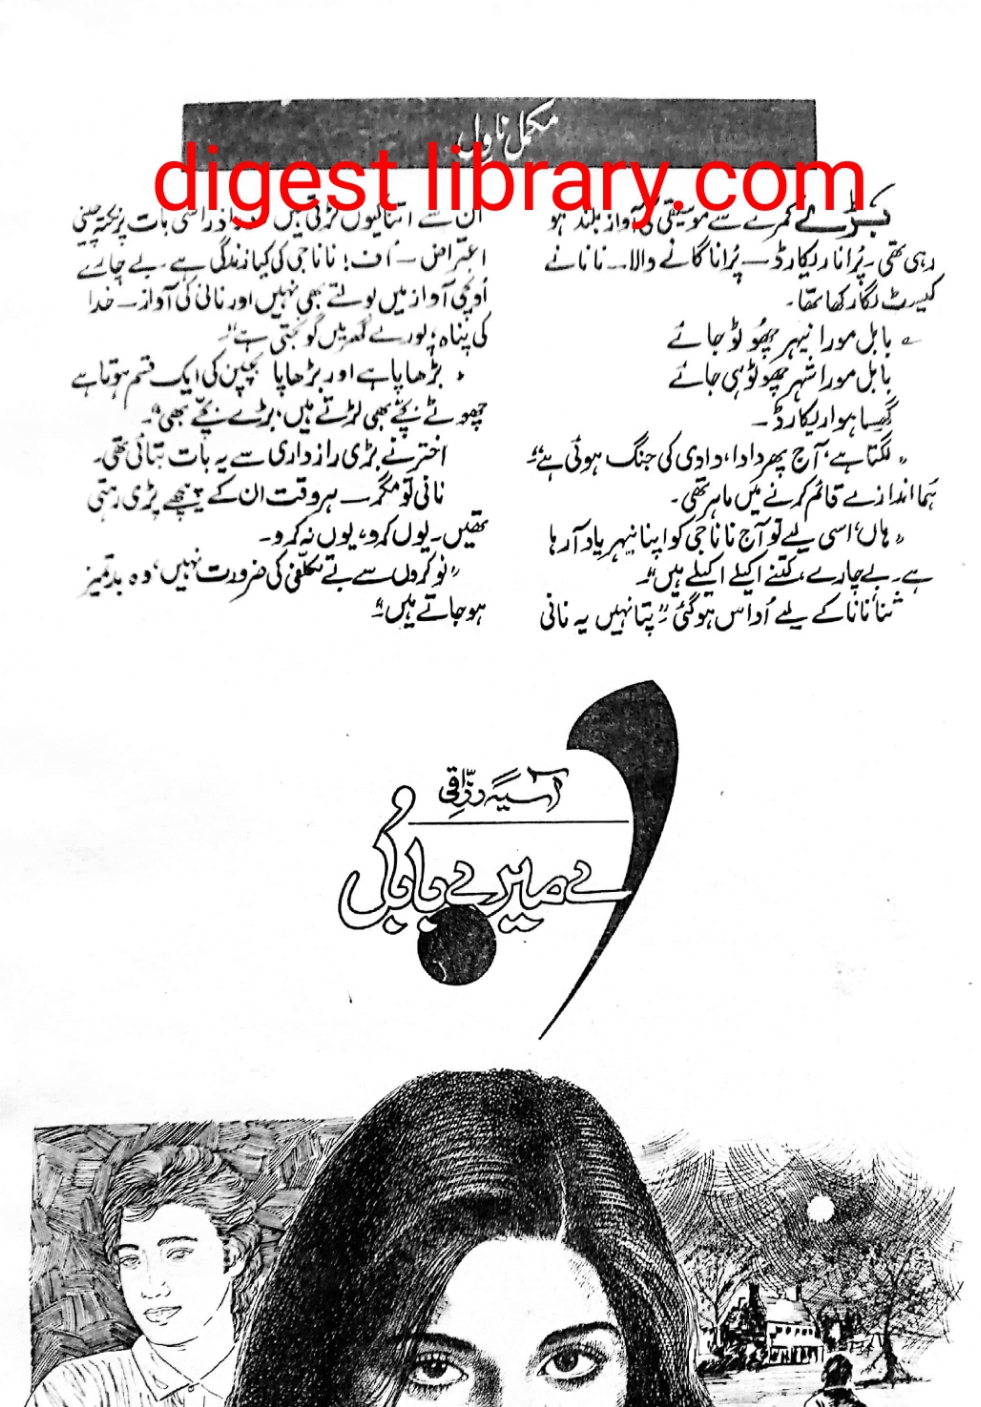 مکمل ناول
digest library.com
بڑے کمرے سے موسیقی کی آواز بلند ہو
رہی تھی۔ پُرانا ریکارڈ — پُرانا گانے والا — نانا نے
کیسٹ لگا رکھا تھا۔
بابل مورا نیہر چھوٹو جائے
بابل مورا شہر چھوٹو ہی جائے
گھسا ہوا ریکارڈ۔
"لگتا ہے، آج پھر دادا، دادی کی جنگ ہوئی ہے"
ہما اندازے قائم کرنے میں ماہر تھی۔
"ہاں، اسی لیے تو آج نانا جی کو اپنا نیہر یاد آ رہا
ہے۔ بے چارے، کتنے اکیلے اکیلے ہیں"۔
ثنا نانا کے لیے اُداس ہو گئی "پتا نہیں یہ نانی
ان سے اتنا کیوں لڑتی ہیں ذرا ذرا سی بات پر نکتہ چینی
اعتراض — اُف! نانا جی کی کیا زندگی ہے۔ بے چارے
اُونچی آواز میں بولتے بھی نہیں اور نانی کی آواز — خدا
کی پناہ، پورے گھر میں گونجتی ہے"۔
"بڑھاپا ہے اور بڑھاپا بچپن کی ایک قسم ہوتا ہے
چھوٹے بچے بھی لڑتے ہیں، بڑے بچے بھی"۔
اختر نے بڑی رازداری سے یہ بات بتائی تھی۔
نانی تو مگر — ہر وقت ان کے پیچھے پڑی رہتی
تھیں۔ یوں کرو، یوں نہ کرو۔
"نوکروں سے بے تکلفی کی ضرورت نہیں، وہ بدتمیز
ہو جاتے ہیں"۔
آسیہ رزاقی
او میرے بابل